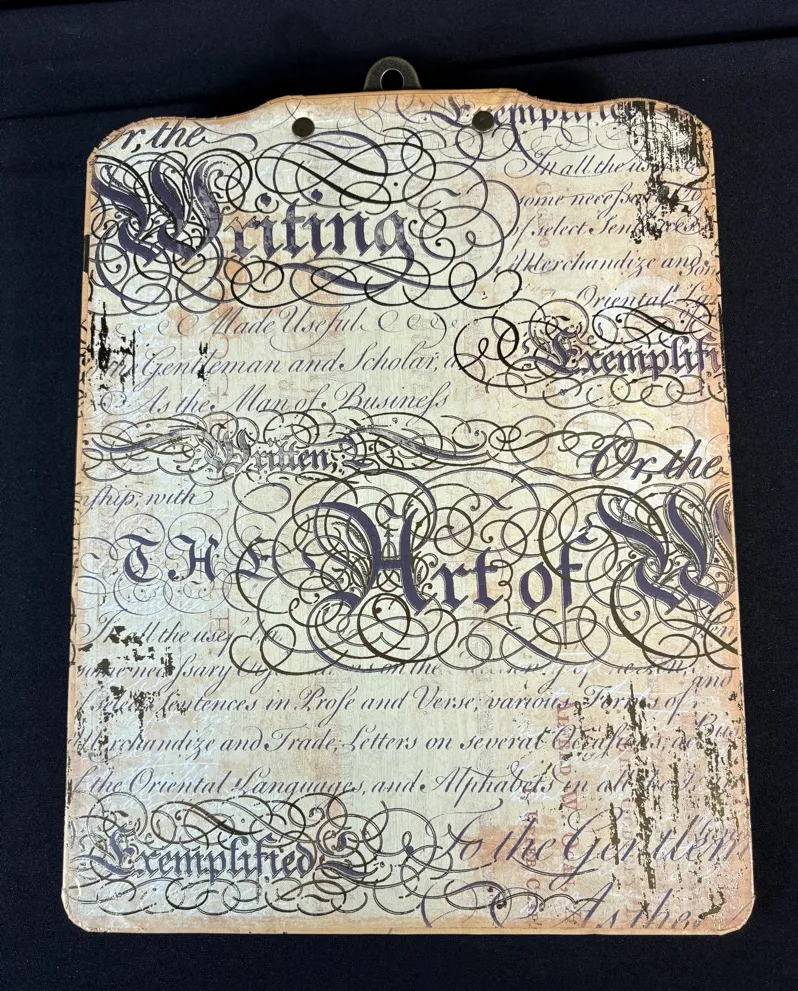 Or, the
Exemplified
Writing
In all the use
some neceſsary
of select Sentences
Merchandize and
Oriental Lan
Made Useful
Gentleman and Scholar, a
Exemplifi
As the Man of Buſineſs
Written,
Or, the
ſhip; with
THE Art of W
In all the useful
some neceſsary on the
Select Sentences in Proſe and Verse; various Forms of
Merchandize and Trade; Letters on several Occaſions;
the Oriental Languages, and Alphabets in all
Exemplified
To the Gentlem
As the